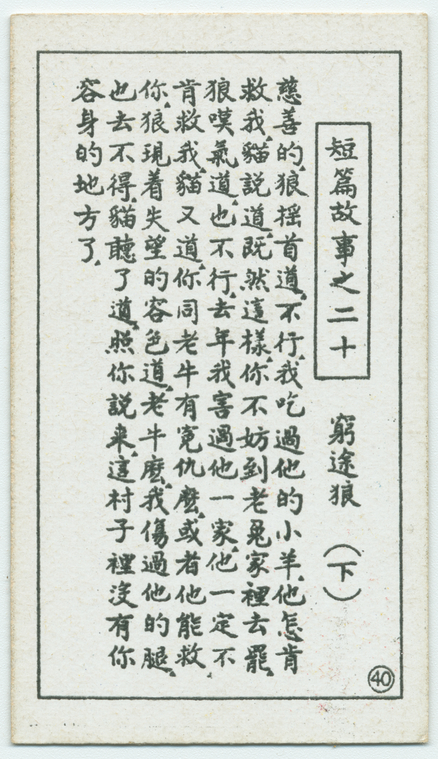 短篇故事之二十　窮途狼　（下）
慈善的、狼摇首道、不行、我吃過他的小羊、他怎肯
救我、貓説道、既然這樣、你不妨到老兔家裡去罷、
狼嘆氣道、也不行、去年我害過他一家、他一定不
肯救我、貓又道、你同老牛有寃仇麽、或者他能救
你、狼現着失望的容色道、老牛麽、我傷過他的腿、
也去不得、貓聽了道、照你説来、這村子裡没有你
容身的地方了、
40